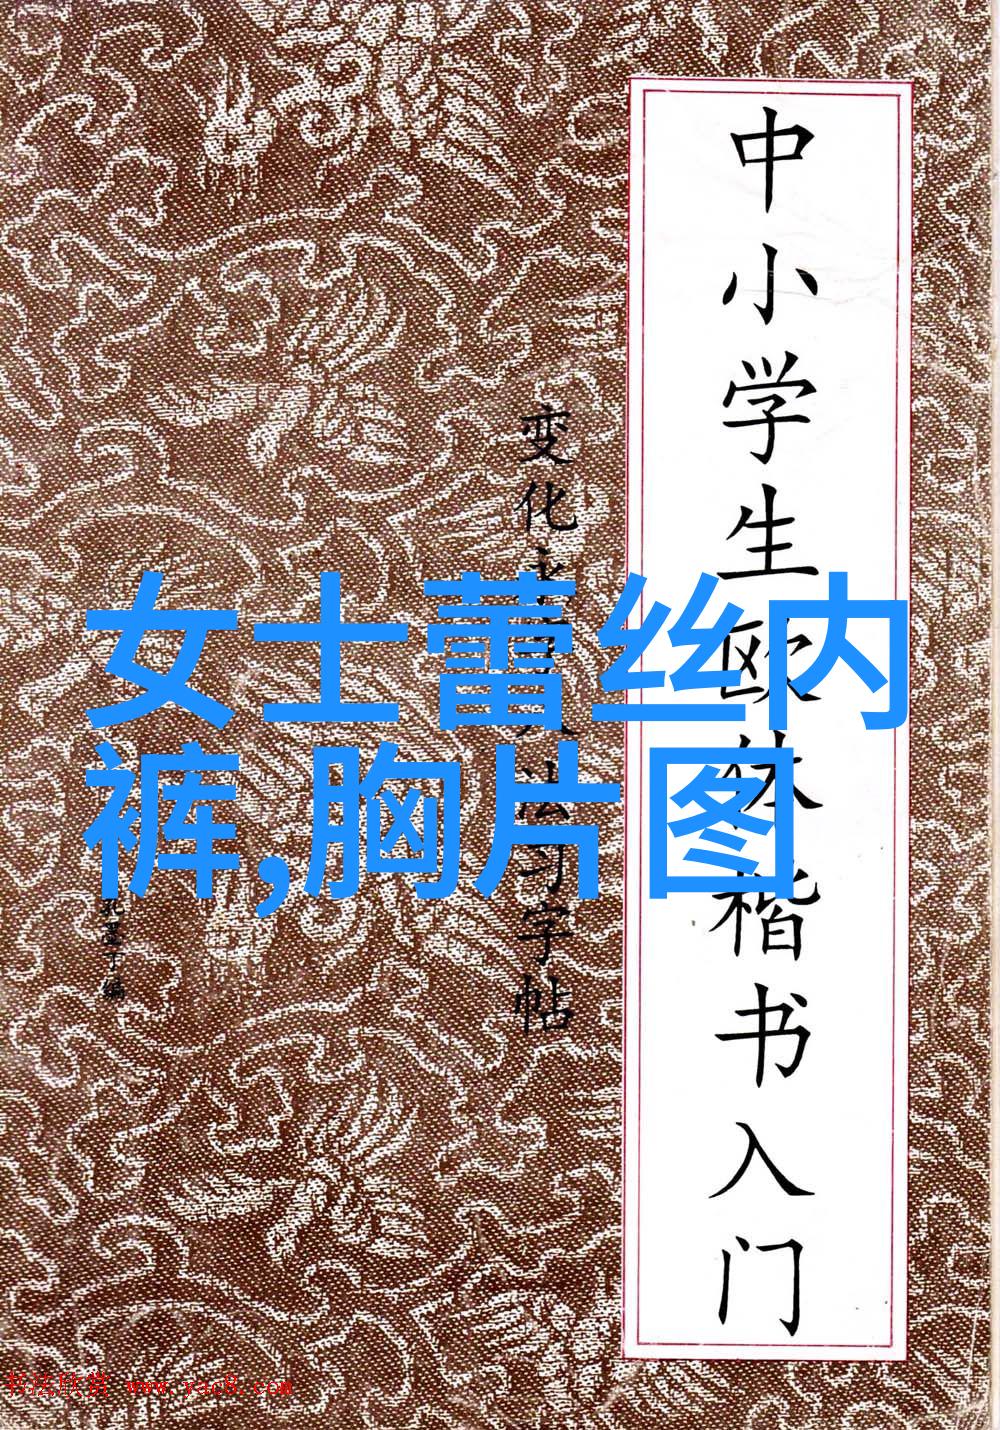 中小学生欧体楷书入门
变化
法习字帖
女士蕾丝内
裤,胸片图
书法欣赏 www.yac8.com